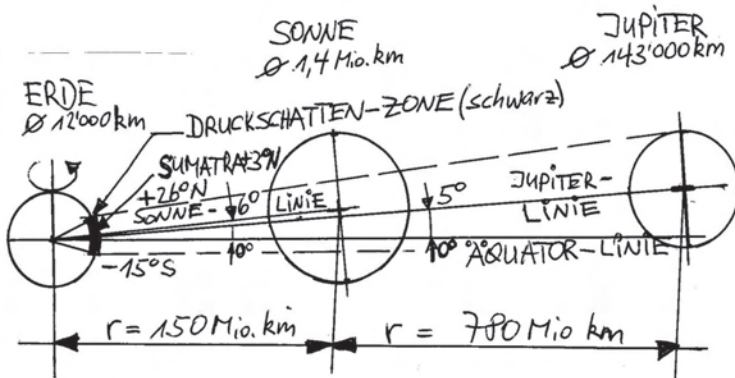 SONNE
Ø 1,4 Mio. km
JUPITER
Ø 143'000 km
ERDE
Ø 12'000 km
DRUCKSCHATTEN-ZONE (schwarz)
SUMATRA +3°N
+26°N
SONNE-LINIE
6°
5°
JUPITER-
LINIE
0°
0° ÄQUATOR-LINIE
-15°S
r = 150 Mio. km
r = 780 Mio km